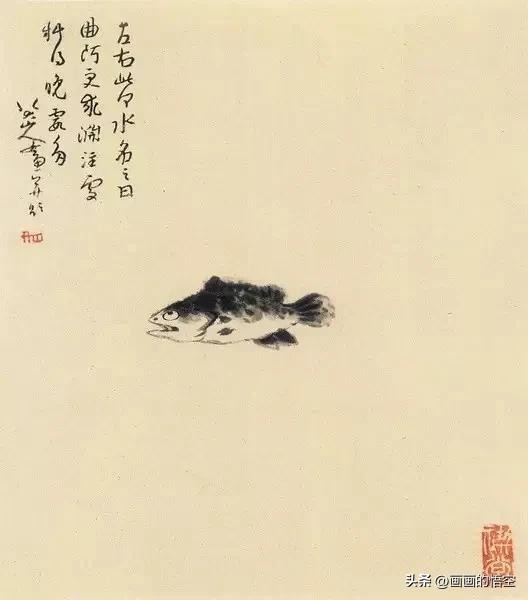 左右此何水名之曰
曲阿更求淵注處
料得晚霞多
八大山人畫并題
头条 @画画的悟空